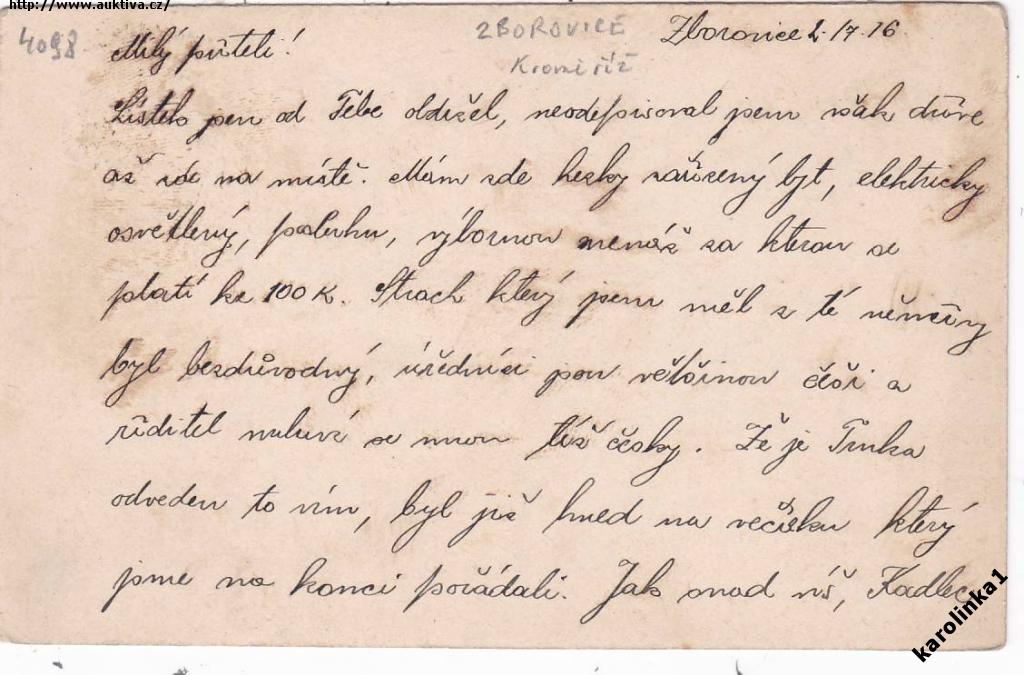 http://www.auktiva.cz/
4098
ZBOROVICE
Kroměříž
Zborovice 2./7.16
Milý příteli!
Lístek jsem od Tebe obdržel, neodepisoval jsem však dříve
až zde na místě. Mám zde hezky zařízený byt, elektricky
osvětlený, posluhu, výbornou menáž za kterou se
platí ke 100 K. Strach který jsem měl z té němčiny
byl bezdůvodný, úředníci jsou většinou češi a
řiditel mluví se mnou též česky. Že je Trnka
odveden to vím, byl již hned na večírku který
jsme na konci pořádali. Jak snad víš, Kadlec
karolinka1